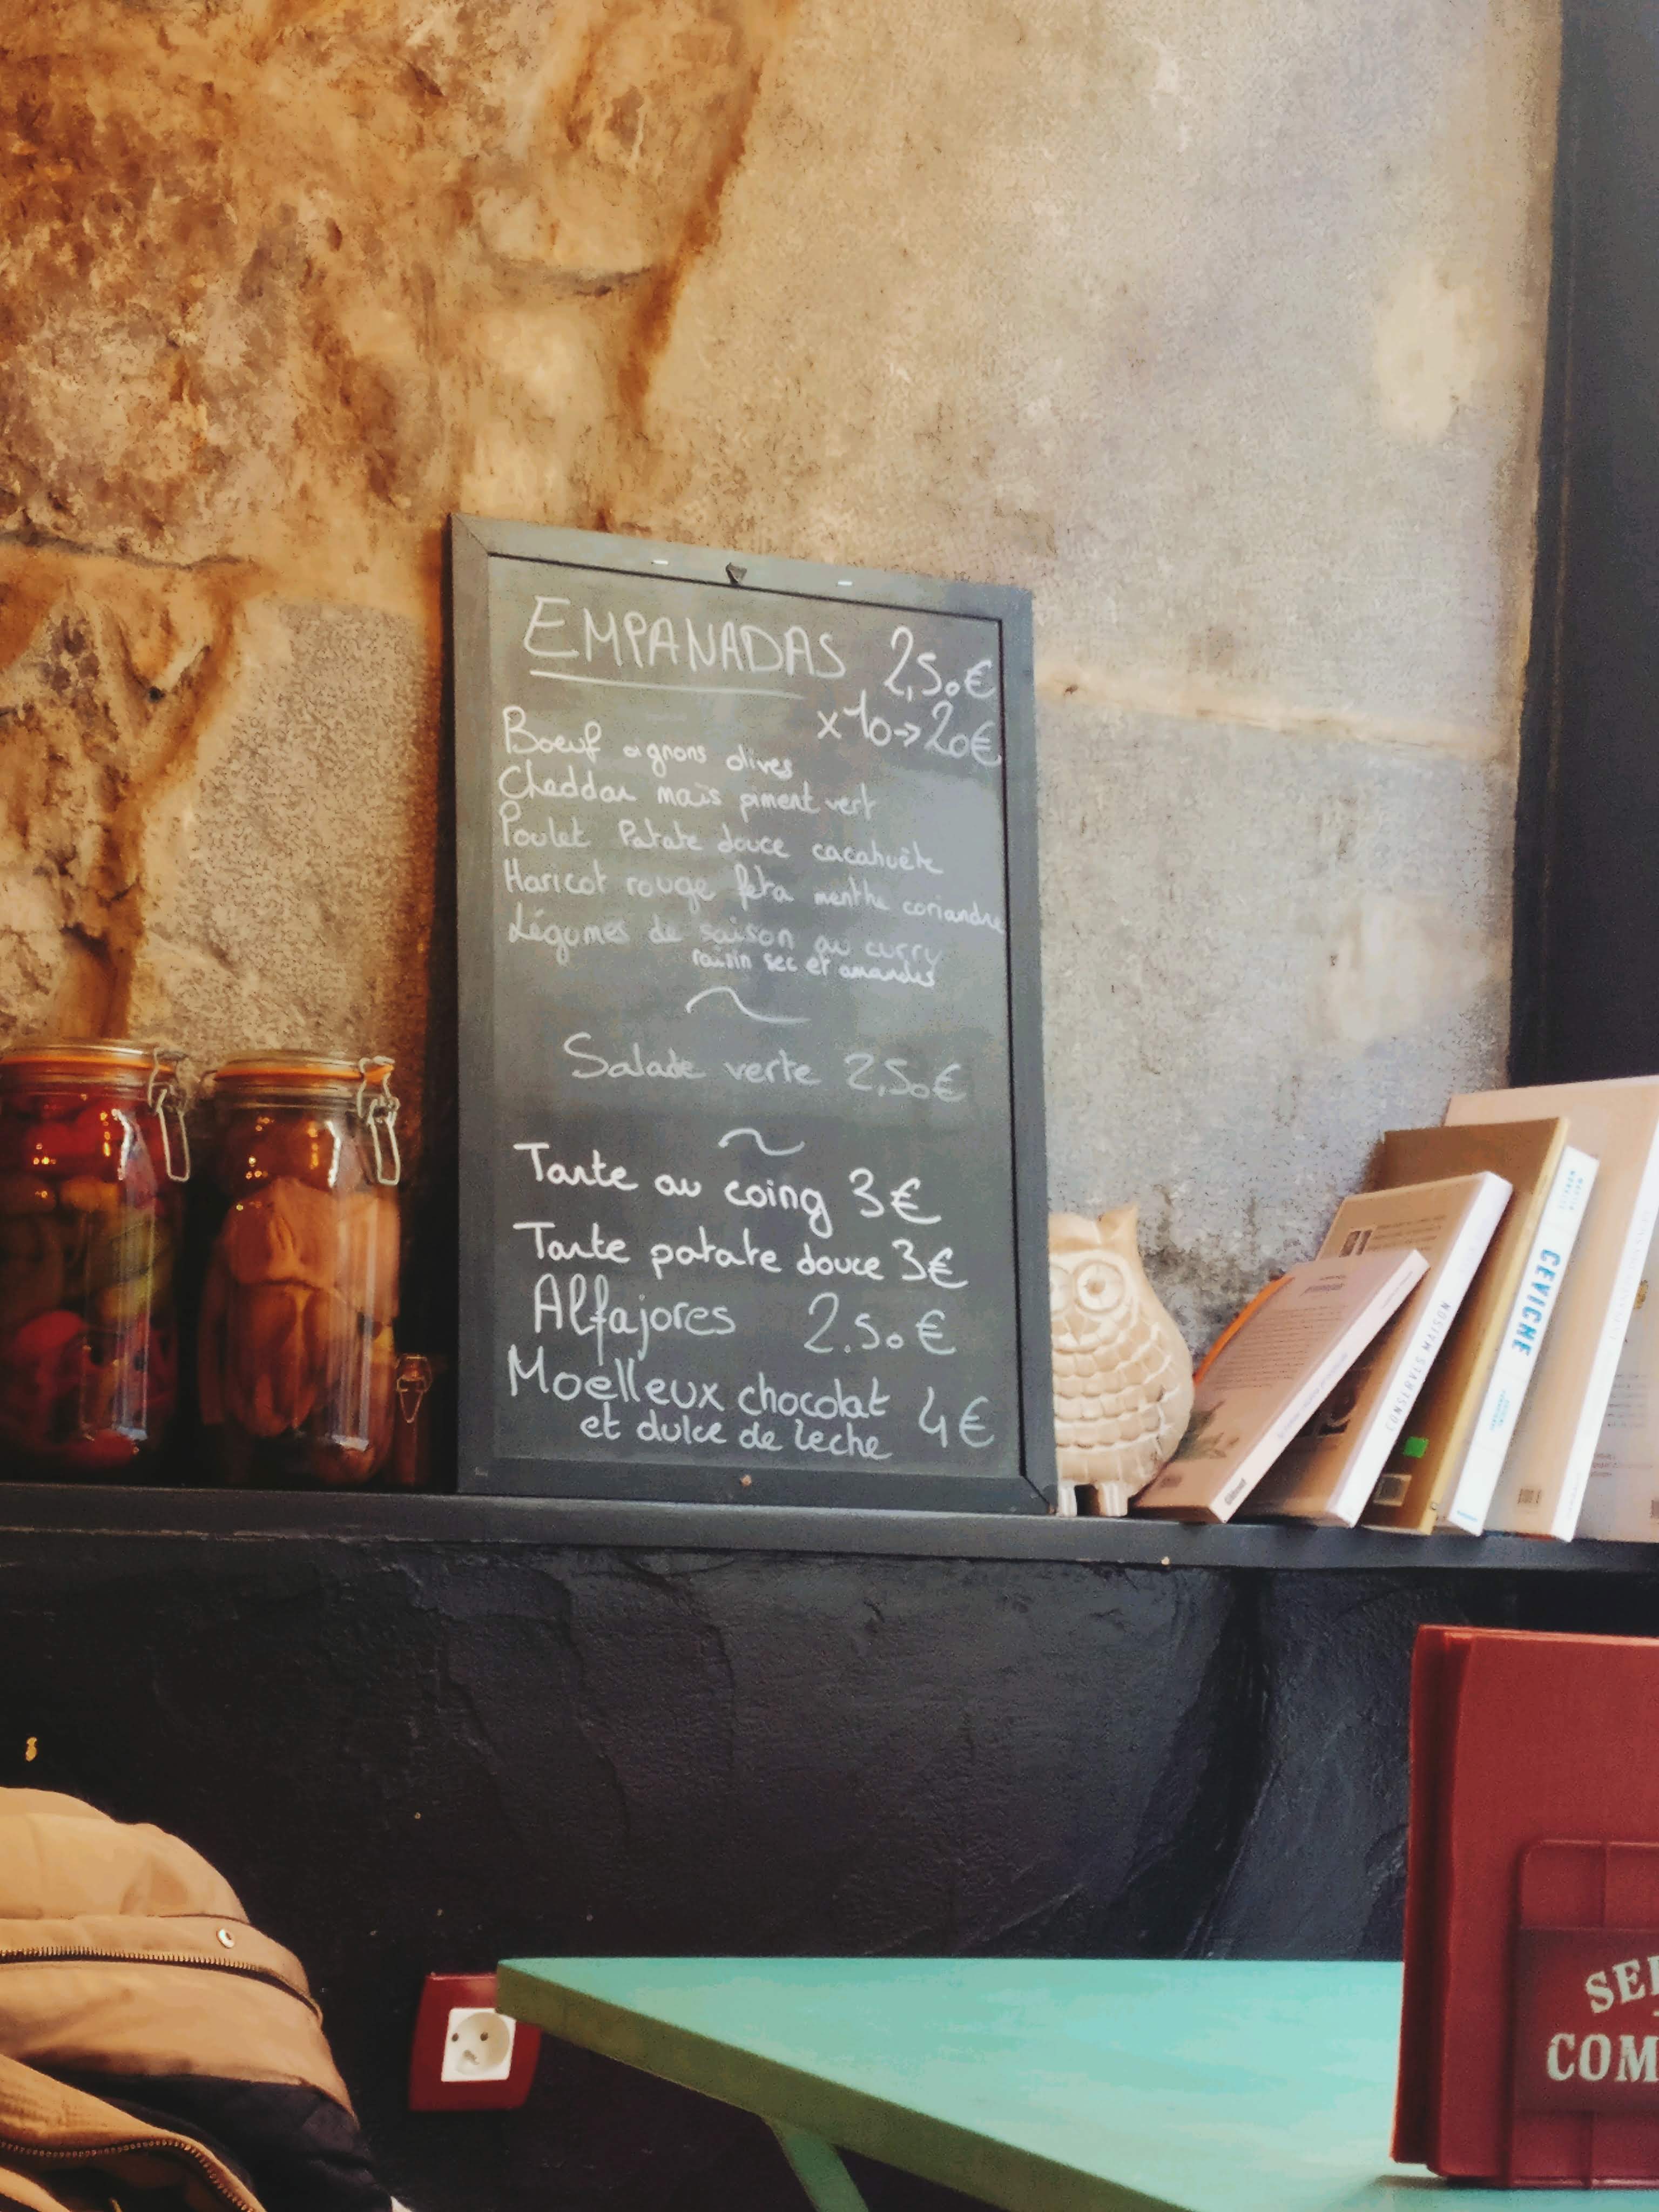 EMPANADAS 2,50€
x10→20€
Boeuf oignons olives
Cheddar maïs piment vert
Poulet Patate douce cacahuète
Haricot rouge feta menthe coriandre
Légumes de saison au curry
raisin sec et amandes
Salade verte 2,50€
Tarte au coing 3€
Tarte patate douce 3€
Alfajores 2.50€
Moelleux chocolat
et dulce de leche 4€
CONSERVES MAISON
CEVICHE
SEL
COM